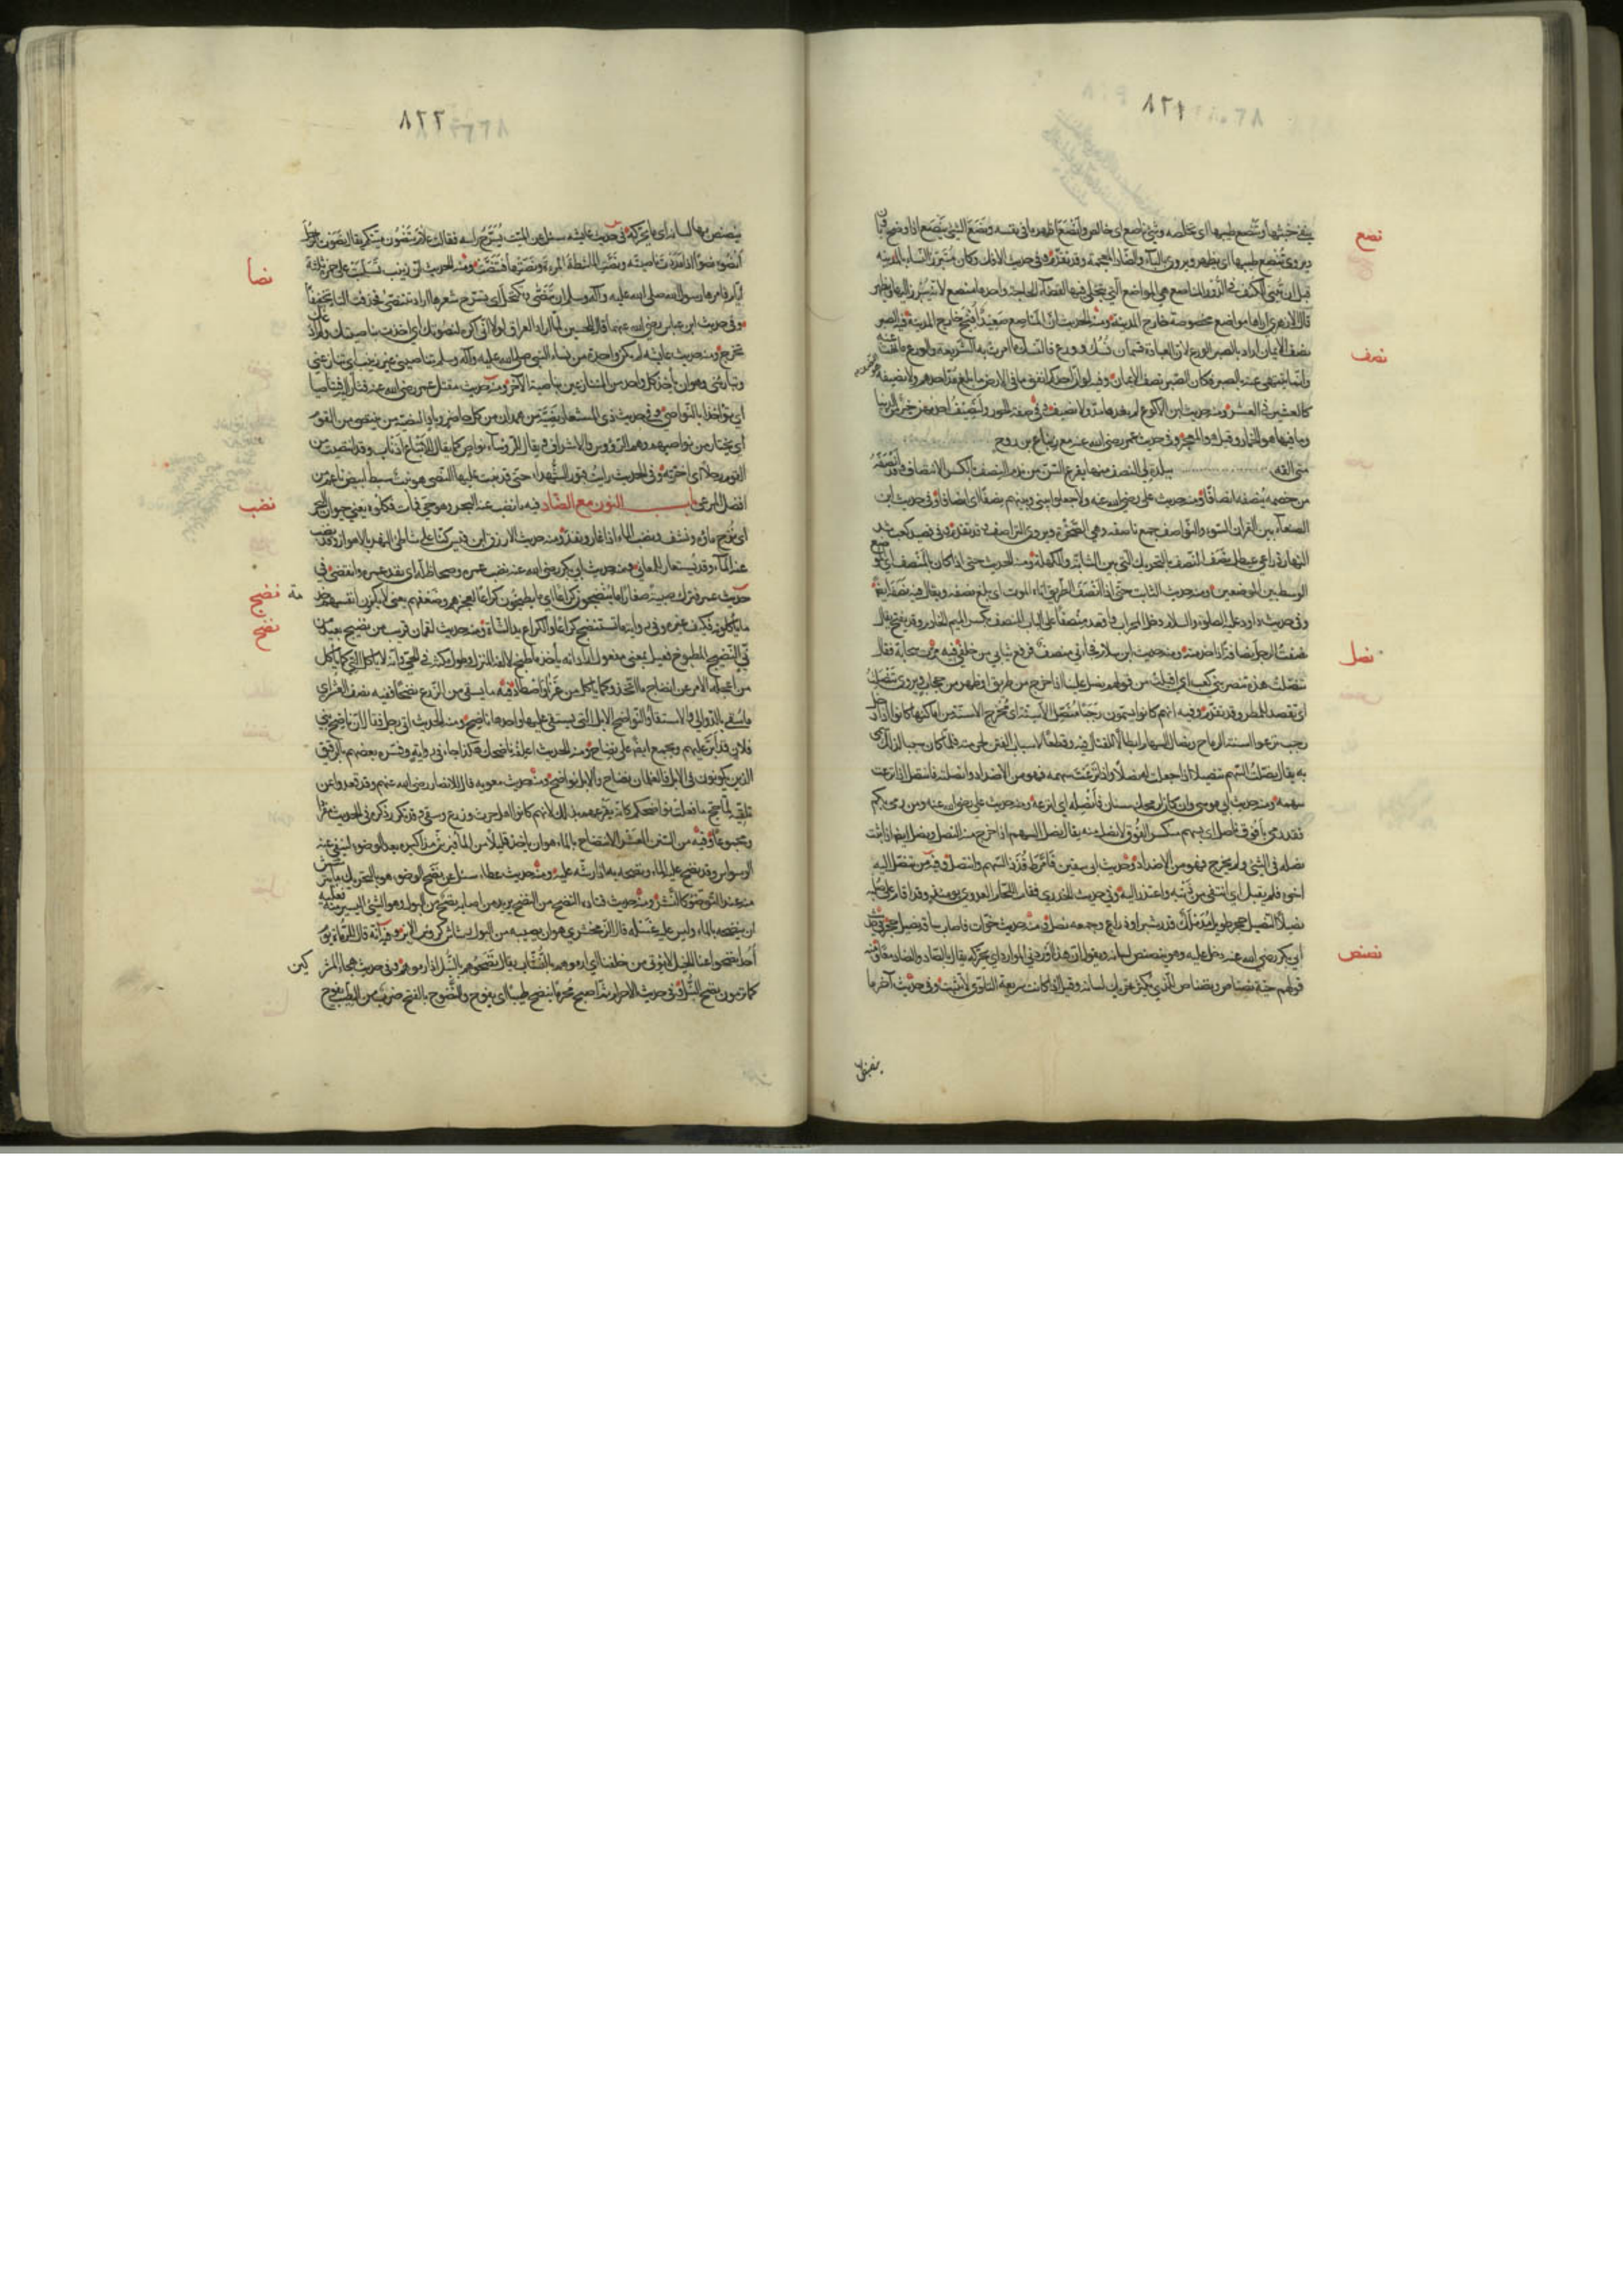 ٨٢١
نصع
وتنصع طيبها اى تخلصه وشئ ناصع اى خالص وانصع اظهر ما فى نفسه ونصع الشئ ينصع اذا وضح وبان
ويروى تنصع طيبها اى يظهر ويروى بالباء والضاد المعجمة وقد تقدم وفى حديث الافك وكان متبرز النساء بالمدينه
قبل ان تبنى الكنف فى الدور المناصع هى المواضع التى يتخلى فيها لقضاء الحاجة واحدها منصع لانه يبرز اليها ويظهر
قال الازهرى اراها مواضع مخصوصة خارج المدينة ومنه الحديث ان المناصع صعيد افيح خارج المدينة فيه الصبر
نصف
نصف الايمان اراد بالصبر الورع لان العبادة قسمان نسك وورع فالنسك ما امرت به الشريعة والورع ما نهت عنه
وانما ينتهى عنه بالصبر فكان الصبر نصف الايمان وفيه لو ان احدكم انفق ما فى الارض ما بلغ مد احدهم ولا نصيفه
كالعشير فى العشر ومنه حديث ابن الاكوع لم يغذها مد ولا نصيف وفى صفة الحور ولنصيف احداهن خير من الدنيا
وما فيها هو الخمار وقيل هو المعجر وفى حديث عمر رضى الله عنه مع زنباع بن روح
متى القه ببلدة لى النصف منها يقرع السن من ندم النصف بالكسر الانتصاف وقد انصفه
من خصمه ينصفه انصافا ومنه حديث على رضى الله عنه ولا جعلوا بينى وبينهم نصفا اى انصافا وفى حديث ابن
الصبغاء بين القران السوء والنواصف جمع ناصفه وهى الصخرة ويروى التراصف وقد تقدم وفى قصيد كعب شد
النهار ذراعى عيطل نصف النصف بالتحريك التى بين الشابة والكهلة ومنه الحديث حتى اذا كان بالمنصف اى الموضع
الوسط بين الموضعين ومنه حديث التائب حتى اذا انصف الطريق اتاه الموت اى بلغ نصفه ويقال فيه نصفه ايضا
وفى حديث داود عليه الصلوة والسلام دخل المحراب واقعد منصفا على الباب المنصف بكسر الميم الخادم وقد يفتح يقال
نصفت الرجل نصافة اذا خدمته ومنه حديث ابن سلام فجاءنى منصف فرفع ثيابى من خلفى فيه مرت سحابة فقال
نصل
تنصلت هذه تنصر بنى كعب اى اقبلت من قولهم نصل علينا اذا خرج من طريق او ظهر من حجاب ويروى تنصلت
اى تقصد للمطر وقد تقدم وفيه انهم كانوا يسمون رجبا منصل الاسنة اى مخرج الاسنة من اماكنها كانوا اذا دخل
رجب نزعوا اسنة الرماح ونصال السهام ابطالا للقتال فيه وقطعا لاسباب الفتن لحرمته فلما كان سببا لذلك سمى
به يقال نصلت السهم تنصيلا اذا جعلت له نصلا واذا نزعت سهمه فهو من الاضداد وانصلته فانتصل اذا نزعت
سهمه ومنه حديث ابى موسى وان كان لرمحك سنان فانصله اى انزعه ومنه حديث على رضى الله عنه ومن رمى بكم
فقد رمى بافوق ناصل اى بسهم منكسر الفوق لا نصل فيه يقال نصل السهم اذا خرج منه النصل ونصل ايضا اذا ثبت
نصله فى الشئ ولم يخرج فهو من الاضداد وحديث ابى سفين فامرط قذذ السهم وانتصل وفيه من تنصل اليه
اخوه فلم يقبل اى انتفى من ذنبه واعتذر اليه وفى حديث الخدرى فقام النحام العدوى يومئذ وقد اقام على صلبه
نصيلا النصيل حجر طويل مدملك قدر شبر او ذراع وجمعه نصل ومنه حديث خوات فاصاب ساقه نصيل حجر وفى حديث
نصنص
ابى بكر رضى الله عنه دخل عليه وهو ينصنص لسانه ويقول ان هذا اوردنى الموارد اى يحركه يقال بالصاد والضاد معا ومنه
قولهم حية نصناص ونضناض للذى يكثر تحريك لسانه وقيل اذا كانت سريعة التلوى لا تثبت وفى حديث آخر ما
ينصنص
٨٢٢
ينصنص بها لسانه اى ما يحركه وفى حديث عايشه سئلت عن الميت يسرح راسه فقالت علام تنصون ميتكم يقال نصوت الرجل
نصا
انصوه نصوا اذا مددت ناصيته ونصت الماشطة المرءة ونصتها فتنصت ومنه الحديث ان زينب تسلبت على حمزة ثلثة
ايام فامرها رسول الله صلى الله عليه وآله وسلم ان تنصى وتكتحل اى تسرح شعرها اراد تتنصى فحذفت التاء تخفيفا
وفى حديث ابن عباس رضى الله عنهما قال للحسين لما اراد العراق لولا انى اكره لنصوتك اى اخذت بناصيتك ولم ادعك
تخرج ومنه حديث عايشه لم يكن واحدة من نساء النبى صلى الله عليه وآله وسلم تناصينى غير زينب اى تنازعنى
وتبارينى وهو ان ياخذ كل واحد من المتنازعين بناصية الاخر ومنه حديث مقتل عمر رضى الله عنه فثار اليه فتناصيا
اى تواخذا بالنواصى وفى حديث ذى المشعار نصية من همدان من كل حاضر وباد النصية من ينتصى من القوم
اى يختار من نواصيهم وهم الرؤوس والاشراف ويقال للرؤساء نواص كما يقال للاتباع اذناب وقد انتصيت من
القوم رجلا اى اخترته وفى الحديث رايت قبور الشهداء حتى قد نبت عليها النصى هو نبت سبط ابيض ناعم من
نضب
افضل المرعى باب النون مع الضاد فيه ما نضب عنه البحر وهو حى فمات فكلوه يعنى حيوان البحر
اى نزح ماؤه ونشف ونضب الماء اذا غار ونفد ومنه حديث الازرق ابن قيس كنا على شاطئ النهر بالاهواز وقد نضب
عنه الماء وقد يستعار للمعانى ومنه حديث ابى بكر رضى الله عنه نضب عمره وضحا ظله اى نفد عمره وانقضى وفى
نضج
حديث عمر فترك صبية صغارا ما ينضجون كراعا اى ما يطبخون كراعا لعجزهم وصغرهم يعنى لا يكفون انفسهم خدمة
نضح
ما ياكلونه فكيف غيره وفى رواية ما تستنضج كراعا والكراع يد الشاة ومنه حديث لقمان قريب من نضيج بعيد من
نئ النضيج المطبوخ فعيل بمعنى مفعول اراد انه ياخذ ما طبخ لالفه المنزل وطول مكثه فى الحى وانه لا ياكل النئ كما ياكل
من اعجله الامر عن انضاج ما اتخذ وكما ياكل من غزا واصطاد فيه ما يسقى من الزرع نضحا ففيه نصف العشر اى
ما يسقى بالدوالى والاستقاء والنواضح الابل التى يستقى عليها واحدها ناضح ومنه الحديث اتى رجل فقال ان ناضح بنى
فلان قد ابد عليهم ويجمع ايضا على نضاح ومنه الحديث اعلفه نضاحك هكذا جاء فى رواية وفسره بعضهم بالرقيق
الذين يكونون فى الابل فالغلمان نضاح والابل نواضح ومنه حديث معويه قال للانصار رضى الله عنهم وقد قعدوا عن
تلقيه لما حج ما فعلت نواضحكم كانه يقرعهم بذلك لانهم كانوا اهل حرث وزرع وسقى وقد تكرر ذكره فى الحديث مفردا
ومجموعا وفيه من السنن العشر الانتضاح بالماء هو ان ياخذ قليلا من الماء فيرش به مذاكيره بعد الوضوء لينفى عنه
الوسواس وقد نضح عليه الماء ونضحه به اذا رشه عليه ومنه حديث عطاء سئل عن نضح الوضوء هو بالتحريك ما يترشش
منه عند التوضؤ كالنشر ومنه حديث قتاده النضح من النضح يريد من اصابه نضح من البول وهو الشئ اليسير منه فعليه
ان ينضحه بالماء وليس عليه غسله قال الزمخشرى هو ان يصيبه من البول رشاش كرؤس الابر وفيه انه قال للرماة يوم
احد انضحوا عنا الخيل لا نؤتى من خلفنا اى ارموهم بالنشاب يقال نضحوهم بالنبل اذا رموهم وفى حديث هجاء المشركين
كما ترمون نضح النبل وفى حديث الاحرام ثم اصبح محرما ينضح طيبا اى يفوح والنضوح بالفتح ضرب من الطيب يفوح